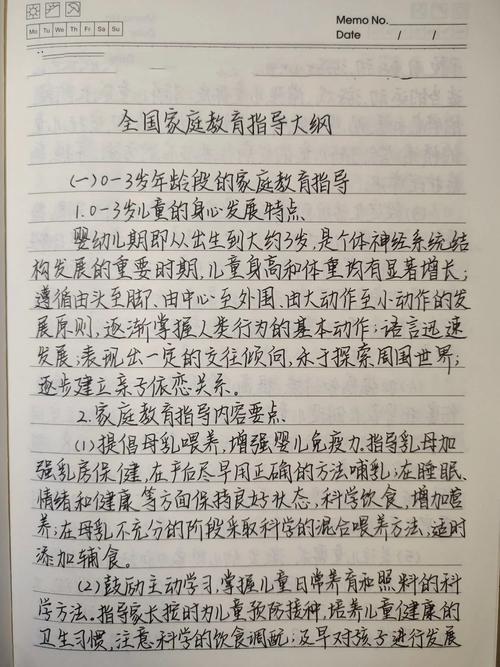 Memo No.
Mo Tu We Th Fr Sa Su
Date / /
全国家庭教育指导大纲
(一)0-3岁年龄段的家庭教育指导
1.0-3岁儿童的身心发展特点
婴幼儿期即从出生到大约3岁,是个体神经系统结
构发展的重要时期,儿童身高和体重均有显著增长;
遵循由头至脚、由中心至外围、由大动作至小动作的发
展原则,逐渐掌握人类行为的基本动作;语言迅速
发展;表现出一定的交往倾向,乐于探索周围世界;
逐步建立亲子依恋关系。
2.家庭教育指导内容要点
(1)提倡母乳喂养,增强婴儿免疫力。指导乳母加
强乳房保健,在产后尽早用正确的方法哺乳;在睡眠、
情绪和健康等方面保持良好状态,科学饮食,增加营
养;在母乳不充分的阶段采取科学的混合喂养方法,适时
添加辅食。
(2)鼓励主动学习,掌握儿童日常养育和照料的科
学方法。指导家长按时为儿童预防接种,培养儿童健康的
卫生习惯,注意科学的饮食调配;及早对孩子进行发展